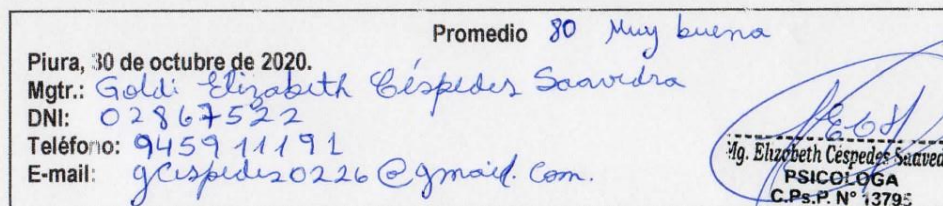 Promedio 80 Muy buena
Piura, 30 de octubre de 2020.
Mgtr.: Goldi Elizabeth Céspedes Saavedra
DNI: 02867522
Teléfono: 945911191
E-mail: gcespedes0226@gmail.com.
Mg. Elizabeth Céspedes Saaved
PSICOLOGA
C.Ps.P. N° 13795